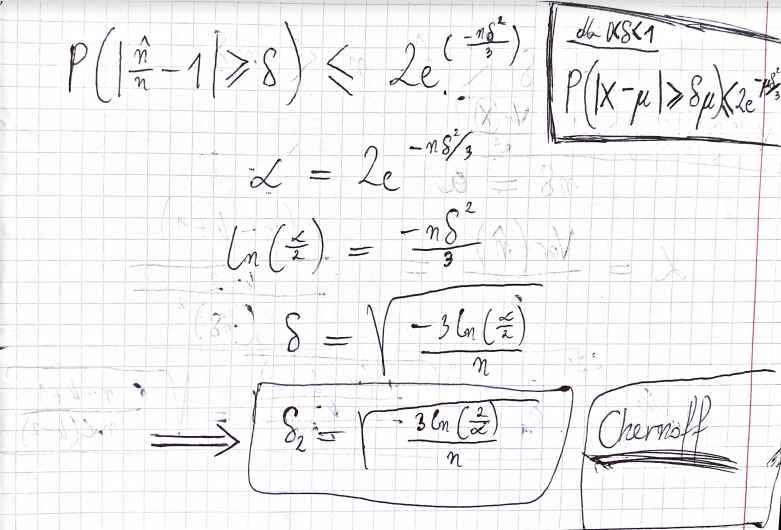 P(|n̂/n - 1| ⩾ δ) ≤ 2e^(-nδ²/3)
dla 0<δ<1
P(|X-μ| ⩾ δμ) ≤ 2e^-μδ²/3
α = 2e^-nδ²/3
ln(α/2) = -nδ²/3
δ = √(-3ln(α/2)/n)
⟹ δ₂ = √(3ln(2/α)/n)
Chernoff